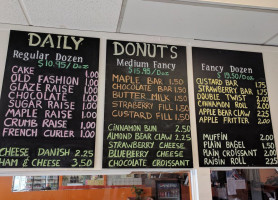 DAILY
Regular Dozen
$10.95/Dozen
CAKE 1.00
OLD FASHION 1.00
GLAZE RAISE 1.00
CHOCOLATE 1.00
SUGAR RAISE 1.00
MAPLE RAISE 1.00
CRUMB RAISE 1.00
FRENCH CURLER 1.00
CHEESE DANISH 2.25
HAM & CHEESE 3.50
DONUTS
Medium Fancy
$15.95/Dozen
MAPLE BAR 1.50
CHOCOLATE BAR 1.50
BUTTER MILK 1.50
STRABERRY FILL 1.50
CUSTARD FILL 1.50
CINNAMON BUN 2.50
ALMOND BEAR CLAW 2.25
STRAWBERRY CHEESE
BLUEBERRY CHEESE
CHOCOLATE CROISSANT
Fancy Dozen
19.50/Dozen
CUSTARD BAR 1.75
STRABERRY BAR 1.75
DOUBLE TWIST 2.00
CINNAMON ROLL 2.00
APPLE BEAR CLAW 2.00
APPLE FRITTER 2.00
MUFFIN 2.00
PLAIN BAGEL 1.50
PLAIN CROISSANT 2.00
RAISIN ROLL 2.25